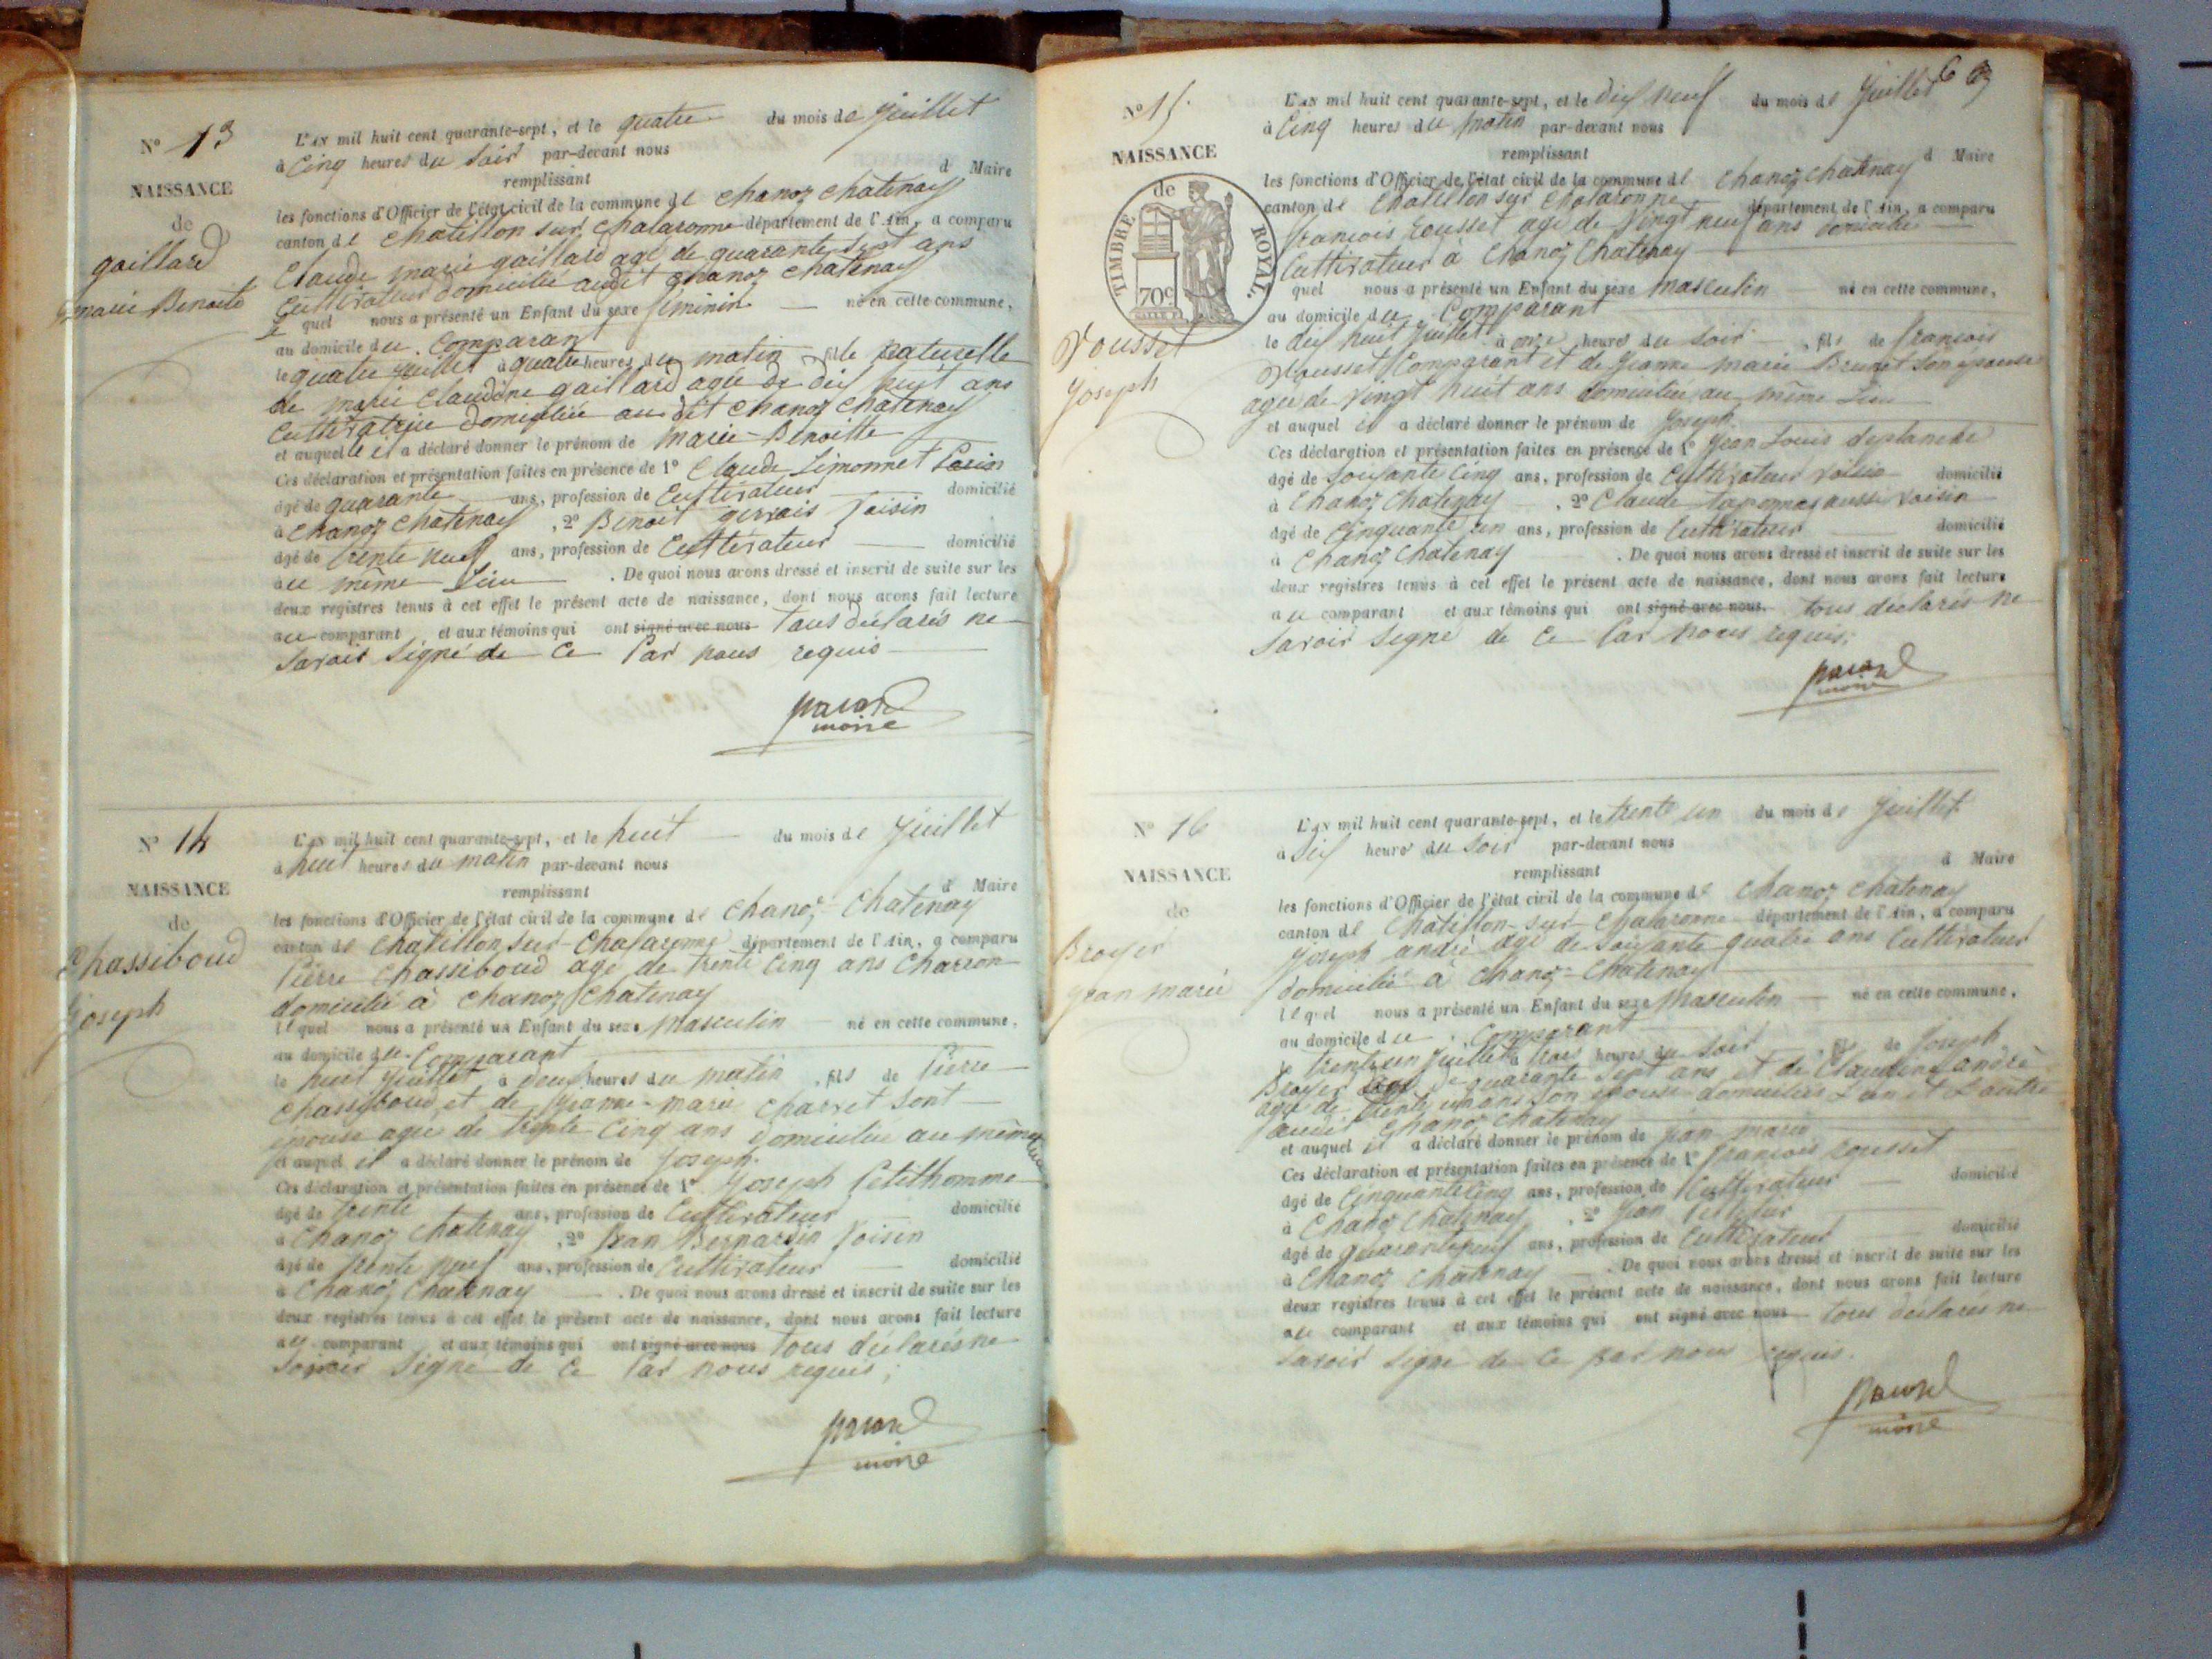 N° 13
NAISSANCE
de
gaillard
marie Benoite
L'AN mil huit cent quarante-sept, et le quatre du mois de Juillet
à Cinq heures du Soir par-devant nous
remplissant d Maire
les fonctions d'Officier de l'état civil de la commune de Chanoz Chatenay
canton de Chatillon sur Chalaronne département de l'Ain, a comparu
Claude marie gaillard agé de quarante sept ans
Cultivateur domicilié audit Chanoz Chatenay
le quel nous a présenté un Enfant du sexe féminin né en cette commune,
au domicile du Comparant
le quatre Juillet à quatre heures du matin fille naturelle
de marie Claudine gaillard agée de dix huit ans
Cultivatrice domiciliée au dit Chanoz Chatenay
et auquel il a déclaré donner le prénom de marie-Benoitte
Ces déclaration et présentation faites en présence de 1° Claude Limonnet Voisin
âgé de quarante ans, profession de Cultivateur domicilié
à Chanoz Chatenay, 2° Benoit gervais Voisin
âgé de trente neuf ans, profession de Cultivateur domicilié
au même Lieu. De quoi nous avons dressé et inscrit de suite sur les
deux registres tenus à cet effet le présent acte de naissance, dont nous avons fait lecture
au comparant et aux témoins qui ont signé avec nous tous déclarés ne
Savoir Signé de Ce Par nous requis
maire
N° 14
NAISSANCE
de
Chassiboud
Joseph
L'AN mil huit cent quarante-sept, et le huit du mois de Juillet
à huit heures du matin par-devant nous
remplissant d Maire
les fonctions d'Officier de l'état civil de la commune de Chanoz-Chatenay
canton de Chatillon sur-Chalaronne département de l'Ain, a comparu
Pierre Chassiboud agé de trente Cinq ans Charron
domicilié à Chanoz Chatenay
lequel nous a présenté un Enfant du sexe masculin né en cette commune,
au domicile du Comparant
le huit Juillet à deux heures du matin, fils de Pierre
Chassiboud et de Jeanne-marie Charvet Sont
épouse agée de trente Cinq ans domiciliée au même
et auquel il a déclaré donner le prénom de Joseph.
Ces déclaration et présentation faites en présence de 1° Joseph Petithomme
âgé de trente ans, profession de Cultivateur domicilié
à Chanoz Chatenay, 2° Jean Bernardin Voisin
âgé de trente neuf ans, profession de Cultivateur domicilié
à Chanoz Chatenay. De quoi nous avons dressé et inscrit de suite sur les
deux registres tenus à cet effet le présent acte de naissance, dont nous avons fait lecture
au comparant et aux témoins qui ont signé avec nous tous déclarés ne
Savoir Signé de Ce Par nous requis;
maire
N° 15
NAISSANCE
de
TIMBRE ROYAL.
70c
Rousset
Joseph
L'AN mil huit cent quarante-sept, et le dix neuf du mois de Juillet
à Cinq heures du matin par-devant nous
remplissant d Maire
les fonctions d'Officier de l'état civil de la commune de Chanoz Chatenay
canton de Chatillon sur Chalaronne département de l'Ain, a comparu
francois Rousset agé de Vingt neuf ans domicilié
Cultivateur à Chanoz Chatenay
quel nous a présenté un Enfant du sexe masculin né en cette commune,
au domicile du Comparant
le dix huit Juillet à onze heures du soir, fils de francois
Rousset Comparant et de Jeanne marie Brunet Son épouse
agée de Vingt huit ans domiciliée au même Lieu
et auquel il a déclaré donner le prénom de Joseph.
Ces déclaration et présentation faites en présence de 1° Jean Louis Deplanche
âgé de Soixante Cinq ans, profession de Cultivateur voisin domicilié
à Chanoz Chatenay, 2° Claude aussi voisin
âgé de Cinquante un ans, profession de Cultivateur domicilié
à Chanoz Chatenay. De quoi nous avons dressé et inscrit de suite sur les
deux registres tenus à cet effet le présent acte de naissance, dont nous avons fait lecture
au comparant et aux témoins qui ont signé avec nous. tous déclarés ne
Savoir Signé de Ce Par nous requis;
maire
N° 16
NAISSANCE
de
Broyer
Jean marie
L'AN mil huit cent quarante-sept, et le trente un du mois de Juillet
à Six heures du Soir par-devant nous
remplissant d Maire
les fonctions d'Officier de l'état civil de la commune de Chanoz Chatenay
canton de Chatillon-sur-Chalaronne département de l'Ain, a comparu
Joseph andré agé de Soixante quatre ans Cultivateur
domicilié à Chanoz-Chatenay
lequel nous a présenté un Enfant du sexe masculin né en cette commune,
au domicile du Comparant
le trente un Juillet à trois heures du soir, fils de Joseph
Broyer agé de quarante Sept ans et de Claudine andré
agée de trente un ans Son épouse domiciliés L'un et L'autre
audit Chanoz Chatenay
et auquel il a déclaré donner le prénom de Jean marie
Ces déclaration et présentation faites en présence de 1° francois Rousset
âgé de Cinquante Cinq ans, profession de Cultivateur domicilié
à Chanoz Chatenay, 2° Jean
âgé de quarante neuf ans, profession de Cultivateur domicilié
à Chanoz Chatenay. De quoi nous avons dressé et inscrit de suite sur les
deux registres tenus à cet effet le présent acte de naissance, dont nous avons fait lecture
au comparant et aux témoins qui ont signé avec nous tous déclarés ne
Savoir Signé de Ce par nous requis.
maire